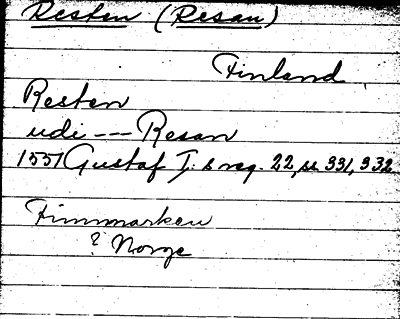 Resten (Resan)
Finland
Resten
udi --- Resan
1551 Gustaf I:s reg. 22, s. 331, 332
Finnmarken
? Norge